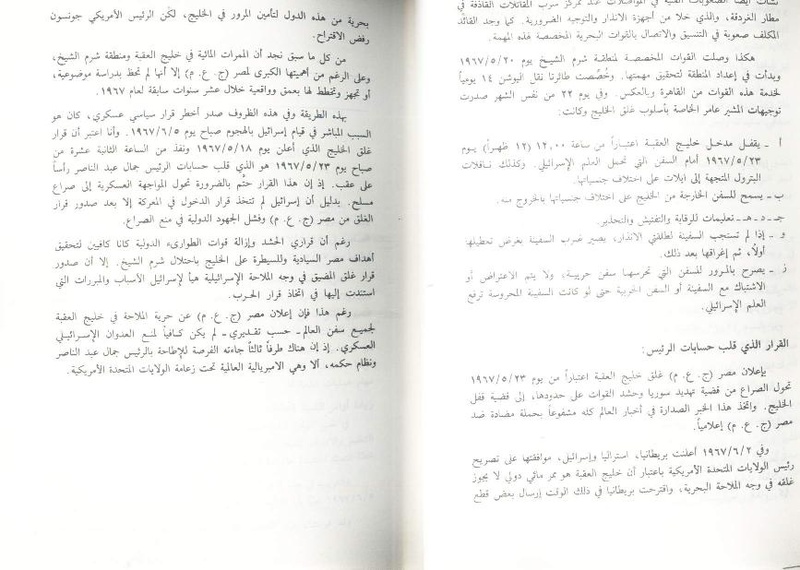 نشأت أيضاً الصعوبات الفنية في المواصلات عند تمركز سرب المقاتلات القاذفة في
مطار الغردقة، والذي خلا من أجهزة الانذار والتوجيه الضرورية. كما وجد القائد
المكلف صعوبة في التنسيق والاتصال بالقوات البحرية المخصصة لهذه المهمة.
هكذا وصلت القوات المخصصة لمنطقة شرم الشيخ يوم ١٩٦٧/٥/٢٠
وبدأت في إعداد المنطقة لتحقيق مهمتها. وخُصّصت طائرتا نقل اليوشن ١٤ يومياً
لخدمة هذه القوات من القاهرة وبالعكس. وفي يوم ٢٢ من نفس الشهر صدرت
توجيهات المشير عامر الخاصة بأسلوب غلق الخليج وكانت:
أ ـ يقفل مدخل خليج العقبة اعتباراً من ساعة ١٢,٠٠ (١٢ ظهراً) يوم
١٩٦٧/٥/٢٣ أمام السفن التي تحمل العلم الإسرائيلي. وكذلك ناقلات
البترول المتجهة إلى ايلات على اختلاف جنسياتها.
ب ـ يسمح للسفن الخارجة من الخليج على اختلاف جنسياتها بالخروج منه.
جـ ـ د ـ هـ ـ تعليمات للرقابة والتفتيش والتحذير.
و ـ إذا لم تستجب السفينة لطلقتي الانذار، يصير ضرب السفينة بغرض تعطيلها
أولاً، ثم إغراقها بعد ذلك.
ز ـ يصرح بالمرور للسفن التي تحرسها سفن حربية، ولا يتم الاعتراض أو
الاشتباك مع السفينة أو السفن الحربية حتى لو كانت السفينة المحروسة ترفع
العلم الإسرائيلي.
القرار الذي قلب حسابات الرئيس:
بإعلان مصر (ج . ع . م) غلق خليج العقبة اعتباراً من يوم ١٩٦٧/٥/٢٣
تحول الصراع من قضية تهديد سوريا وحشد القوات على حدودها، إلى قضية قفل
الخليج. واتخذ هذا الخبر الصدارة في أخبار العالم كله مشفوعاً بحملة مضادة ضد
مصر (ج . ع . م) إعلامياً.
وفي ١٩٦٧/٦/٢ أعلنت بريطانيا، استراليا وإسرائيل، موافقتها على تصريح
رئيس الولايات المتحدة الأمريكية باعتبار أن خليج العقبة هو ممر مائي دولي لا يجوز
غلقه في وجه الملاحة البحرية، واقترحت بريطانيا في ذلك الوقت إرسال بعض قطع
بحرية من هذه الدول لتأمين المرور في الخليج، لكن الرئيس الأمريكي جونسون
رفض الاقتراح.
من كل ما سبق نجد أن الممرات المائية في خليج العقبة ومنطقة شرم الشيخ،
وعلى الرغم من أهميتها الكبرى لمصر (ج . ع . م) إلا أنها لم تحظ بدراسة موضوعية،
أو تجهيز وتخطيط لها بعمق وواقعية خلال عشر سنوات سابقة لعام ١٩٦٧.
بهذه الطريقة وفي هذه الظروف صدر أخطر قرار سياسي عسكري، كان هو
السبب المباشر في قيام إسرائيل بالهجوم صباح يوم ١٩٦٧/٦/٥. وأنا اعتبر أن قرار
غلق الخليج الذي أعلن يوم ١٩٦٧/٥/١٨ ونفذ من الساعة الثانية عشرة من
صباح يوم ١٩٦٧/٥/٢٣ هو الذي قلب حسابات الرئيس جمال عبد الناصر رأساً
على عقب. إذ إن هذا القرار حتّم بالضرورة تحول المواجهة العسكرية إلى صراع
مسلح. بدليل أن إسرائيل لم تتخذ قرار الدخول في المعركة إلا بعد صدور قرار
الغلق من مصر (ج . ع . م) وفشل الجهود الدولية في منع الصراع.
رغم أن قراري الحشد وإزالة قوات الطوارىء الدولية كانا كافيين لتحقيق
أهداف مصر السيادية وللسيطرة على الخليج باحتلال شرم الشيخ. إلا أن صدور
قرار غلق المضيق في وجه الملاحة الإسرائيلية هيأ لإسرائيل الأسباب والمبررات التي
استندت إليها في اتخاذ قرار الحرب.
رغم هذا فإن إعلان مصر (ج . ع . م) عن حرية الملاحة في خليج العقبة
لجميع سفن العالم ـ حسب تقديري ـ لم يكن كافياً لمنع العدوان الإسرائيلي
العسكري. إذ إن هناك طرفاً ثالثاً جاءته الفرصة للإطاحة بالرئيس جمال عبد الناصر
ونظام حكمه، ألا وهي الامبريالية العالمية تحت زعامة الولايات المتحدة الأمريكية.